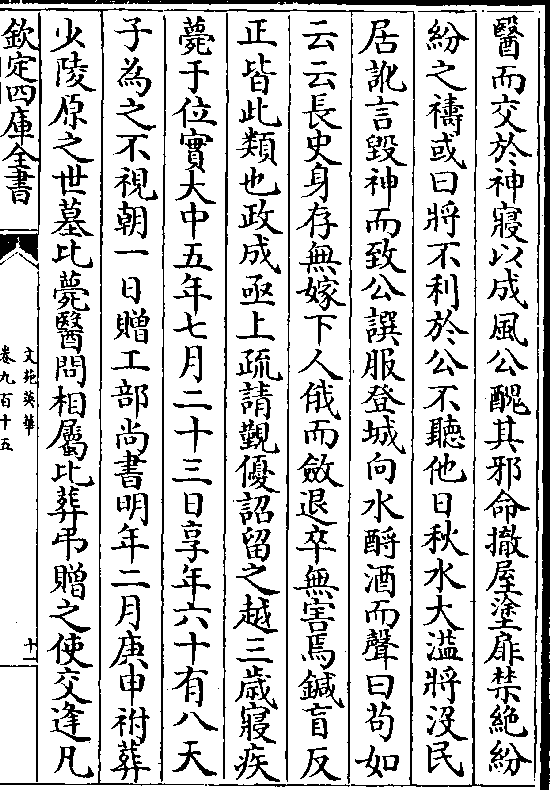 醫而交於神寖以成風公醜其邪命撤屋塗扉禁絶紛
紛之禱或曰將不利於公不聽他日秋水大溢將没民
居訛言毁神而致公譔服登城向水酹酒而聲曰苟如
云云長史身存無嫁下人俄而斂退卒無害焉鍼肓反
正皆此類也政成亟上疏請覲優詔留之越三歲寢疾
薨于位實大中五年七月二十三日享年六十有八天
子為之不視朝一日贈工部尚書明年二月庚申祔葬
少陵原之世墓比薨醫問相屬比葬弔贈之使交逢凡
欽定四庫全書
文苑英華
卷九百十五
十一